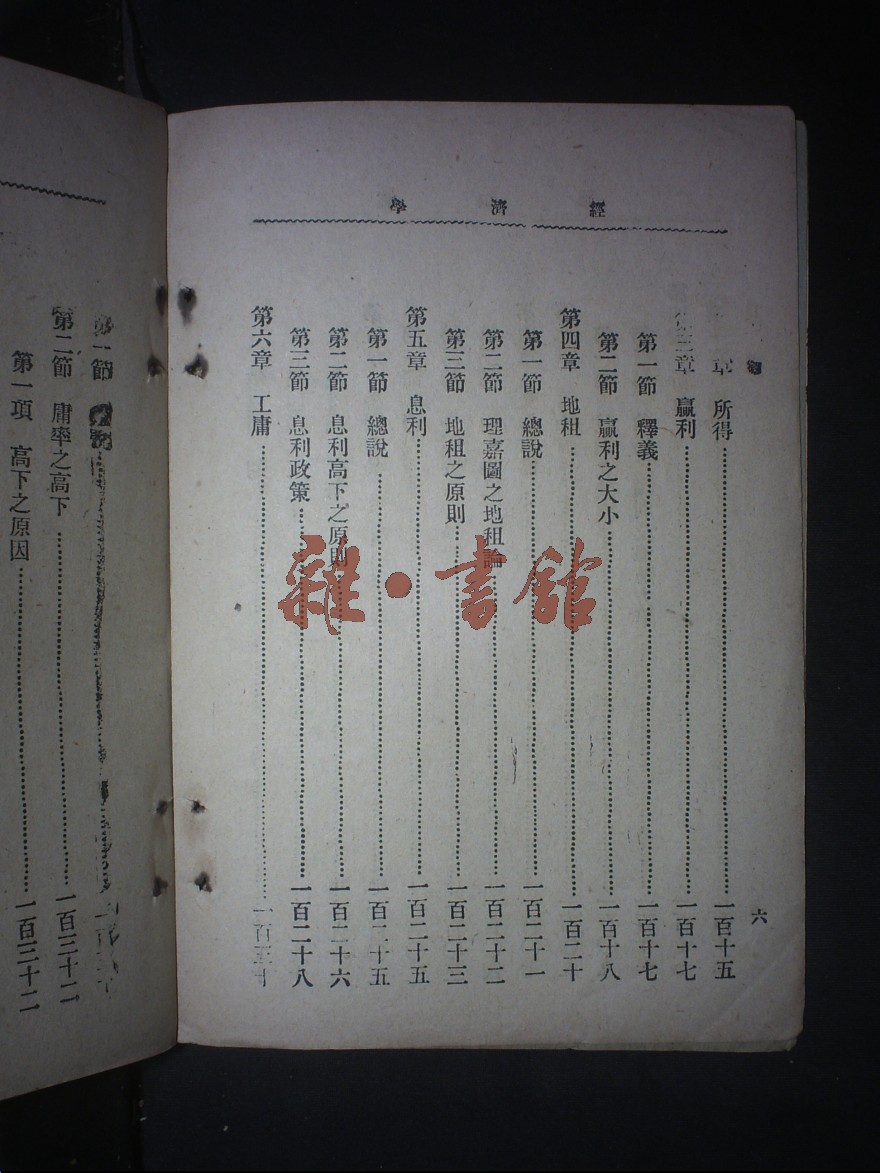 經濟學
六
章 所得 一百十五
三章 贏利 一百十七
第一節 釋義 一百十七
第二節 贏利之大小 一百十八
第四章 地租 一百二十
第一節 總說 一百二十一
第二節 理嘉圖之地租論 一百二十二
第三節 地租之原則 一百二十三
第五章 息利 一百二十五
第一節 總說 一百二十五
第二節 息利高下之原則 一百二十六
第三節 息利政策 一百二十八
第六章 工庸 一百三十
第一節
第二節 庸率之高下 一百三十二
第一項 高下之原因 一百三十二
雜·書館